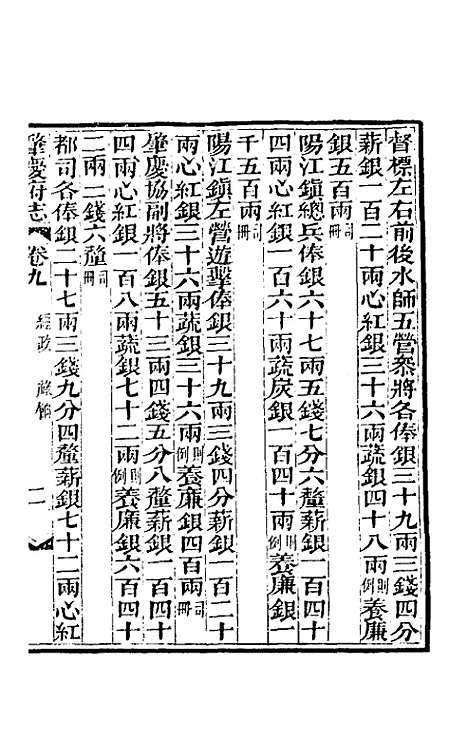 督標左右前後水師五營叅將各俸銀三十九兩三錢四分
薪銀一百二十兩心紅銀三十六兩蔬銀四十八兩則例養廉
銀五百兩司冊
陽江鎮總兵俸銀六十七兩五錢七分六釐薪銀一百四十
四兩心紅銀一百六十兩蔬炭銀一百四十兩則例養廉銀一
千五百兩司冊
陽江鎮左營遊擊俸銀三十九兩三錢四分薪銀一百二十
兩心紅銀三十六兩蔬銀三十六兩則例養廉銀四百兩司冊
肇慶協副將俸銀五十三兩四錢五分八釐薪銀一百四十
四兩心紅銀一百八兩蔬銀七十二兩則例養廉銀六百四十
二兩二錢六釐司冊
都司各俸銀二十七兩三錢九分四釐薪銀七十二兩心紅
肇慶府志 卷九 經政 祿餉 二